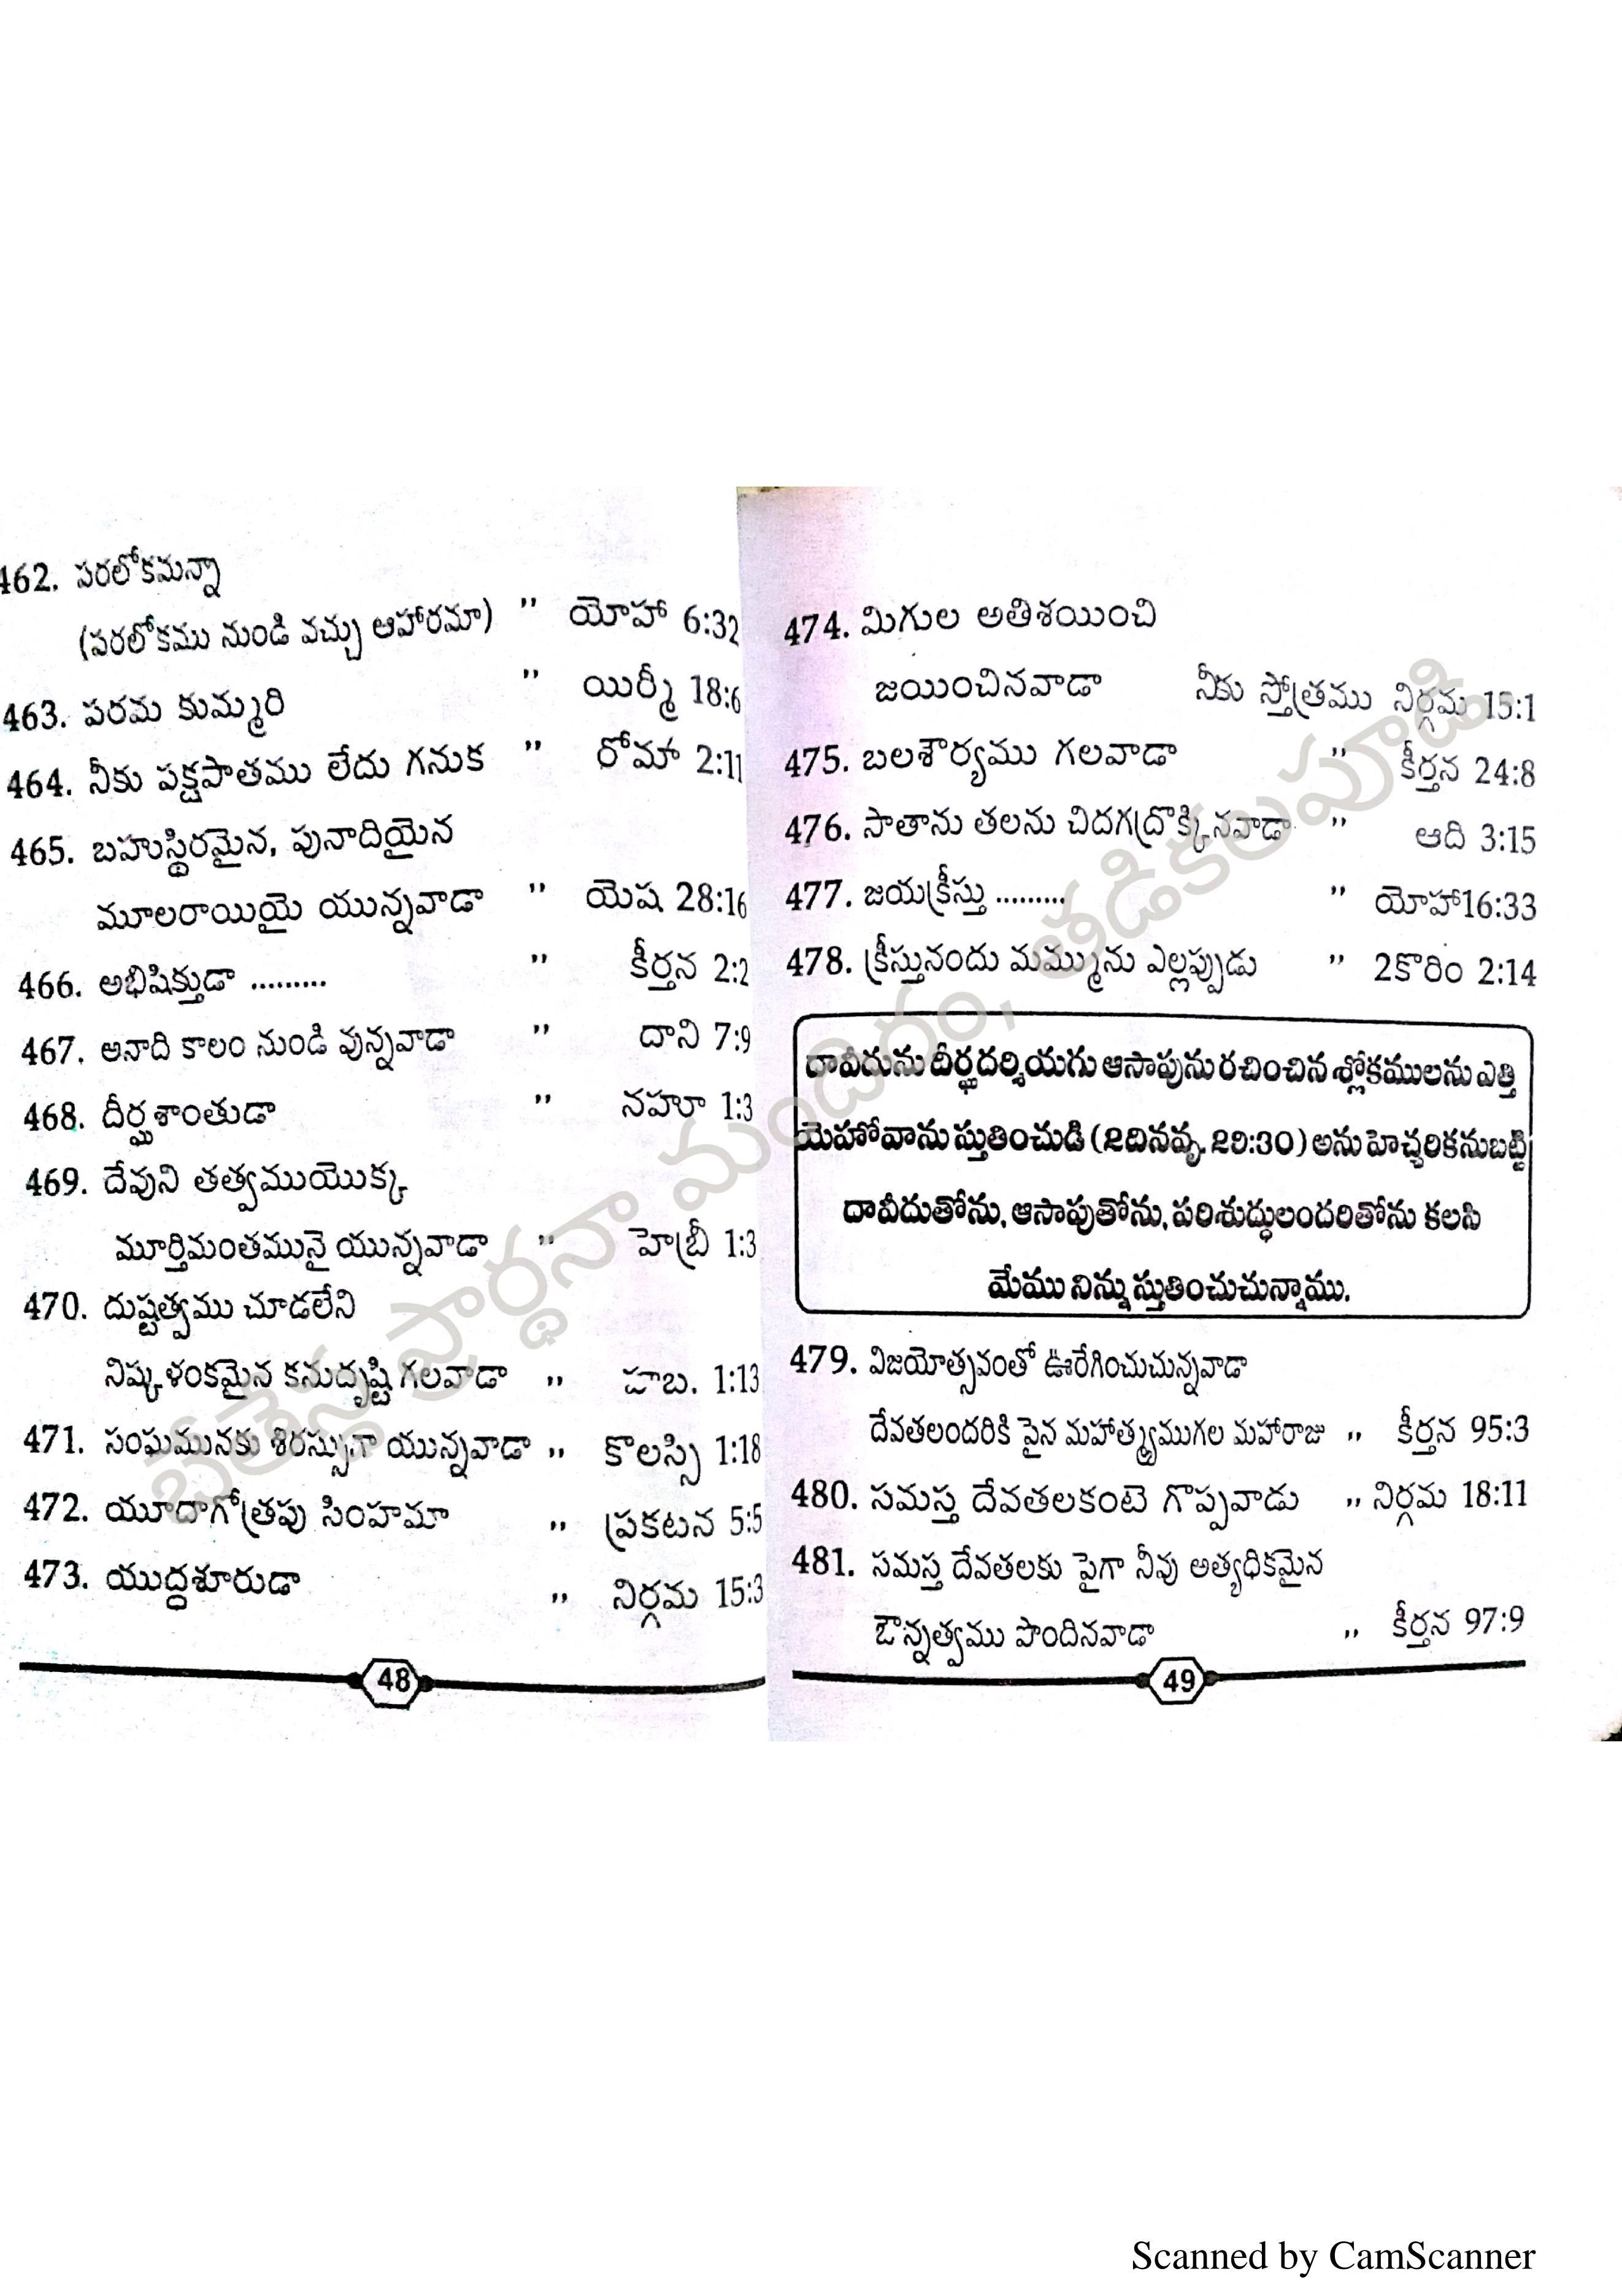 462. పరలోకమన్నా
(పరలోకము నుండి వచ్చు ఆహారమా) " యోహా 6:32
463. పరమ కుమ్మరి " యిర్మీ 18:6
464. నీకు పక్షపాతము లేదు గనుక " రోమా 2:11
465. బహుస్థిరమైన, పునాదియైన
మూలరాయియై యున్నవాడా " యెష 28:16
466. అభిషిక్తుడా ......... " కీర్తన 2:2
467. అనాది కాలం నుండి వున్నవాడా " దాని 7:9
468. దీర్ఘశాంతుడా " నహూ 1:3
469. దేవుని తత్వముయొక్క
మూర్తిమంతమునై యున్నవాడా " హెబ్రీ 1:3
470. దుష్టత్వము చూడలేని
నిష్కళంకమైన కనుదృష్టి గలవాడా ,, హబ. 1:13
471. సంఘమునకు శిరస్సుగా యున్నవాడా ,, కొలస్సి 1:18
472. యూదాగోత్రపు సింహమా ,, ప్రకటన 5:5
473. యుద్ధశూరుడా ,, నిర్గమ 15:3
48
474. మిగుల అతిశయించి
జయించినవాడా నీకు స్తోత్రము నిర్గమ 15:1
475. బలశౌర్యము గలవాడా " కీర్తన 24:8
476. సాతాను తలను చిదగద్రొక్కినవాడా " ఆది 3:15
477. జయక్రీస్తు ......... " యోహా16:33
478. క్రీస్తునందు మమ్మును ఎల్లప్పుడు " 2కొరిం 2:14
దావీదును దీర్ఘదర్శియగు ఆసాపును రచించిన శ్లోకములను ఎత్తి
యెహోవాను స్తుతించుడి (2దినవృ. 29:30) అను హెచ్చరికనుబట్టి
దావీదుతోను, ఆసాపుతోను, పరిశుద్ధులందరితోను కలసి
మేము నిన్ను స్తుతించుచున్నాము.
479. విజయోత్సవంతో ఊరేగించుచున్నవాడా
దేవతలందరికి పైన మహాత్మ్యముగల మహారాజు ,, కీర్తన 95:3
480. సమస్త దేవతలకంటె గొప్పవాడు ,, నిర్గమ 18:11
481. సమస్త దేవతలకు పైగా నీవు అత్యధికమైన
ఔన్నత్వము పొందినవాడా ,, కీర్తన 97:9
49
బెతెస్థ ప్రార్థనా మందిరం, తాడికలపూడి
Scanned by CamScanner